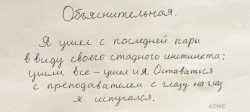 Объяснительная.
Я ушел с последней пары
в виду своего стадного инстинкта:
ушли все – ушел и я. Оставаться
с преподавателем с глазу на глаз
я испугался.
ADME